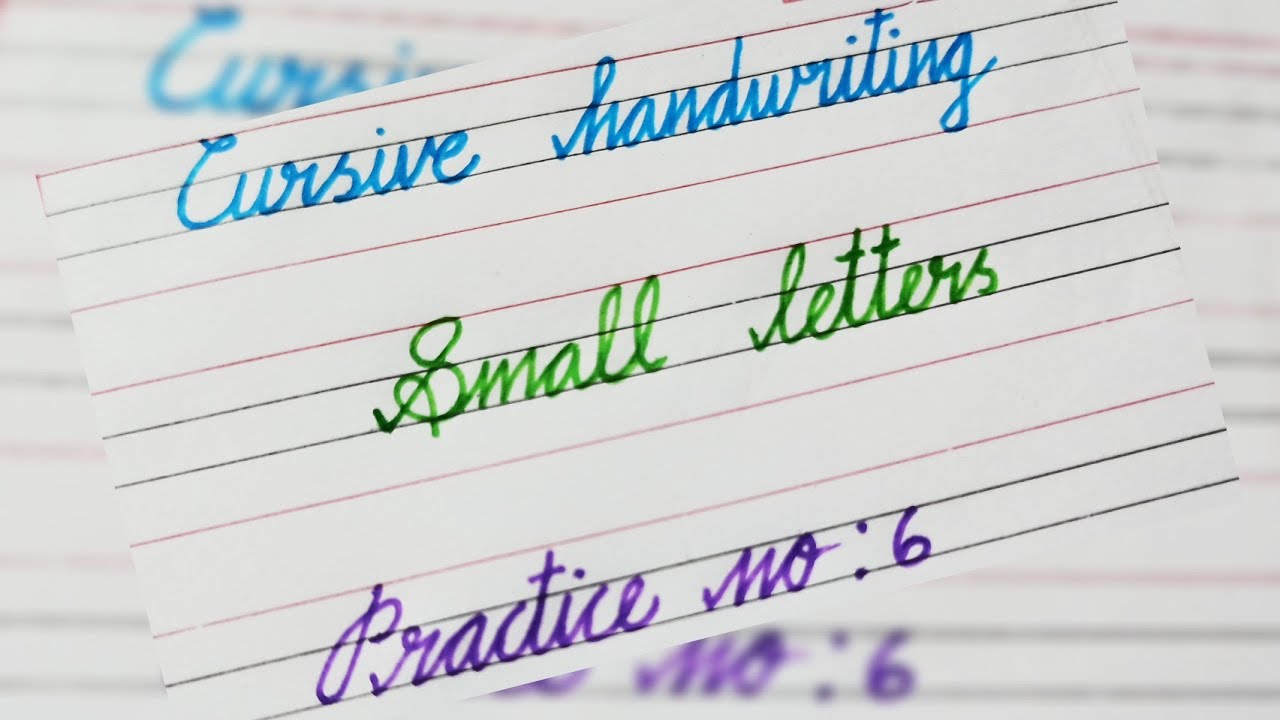 Cursive handwriting
Small letters
Practice no : 6